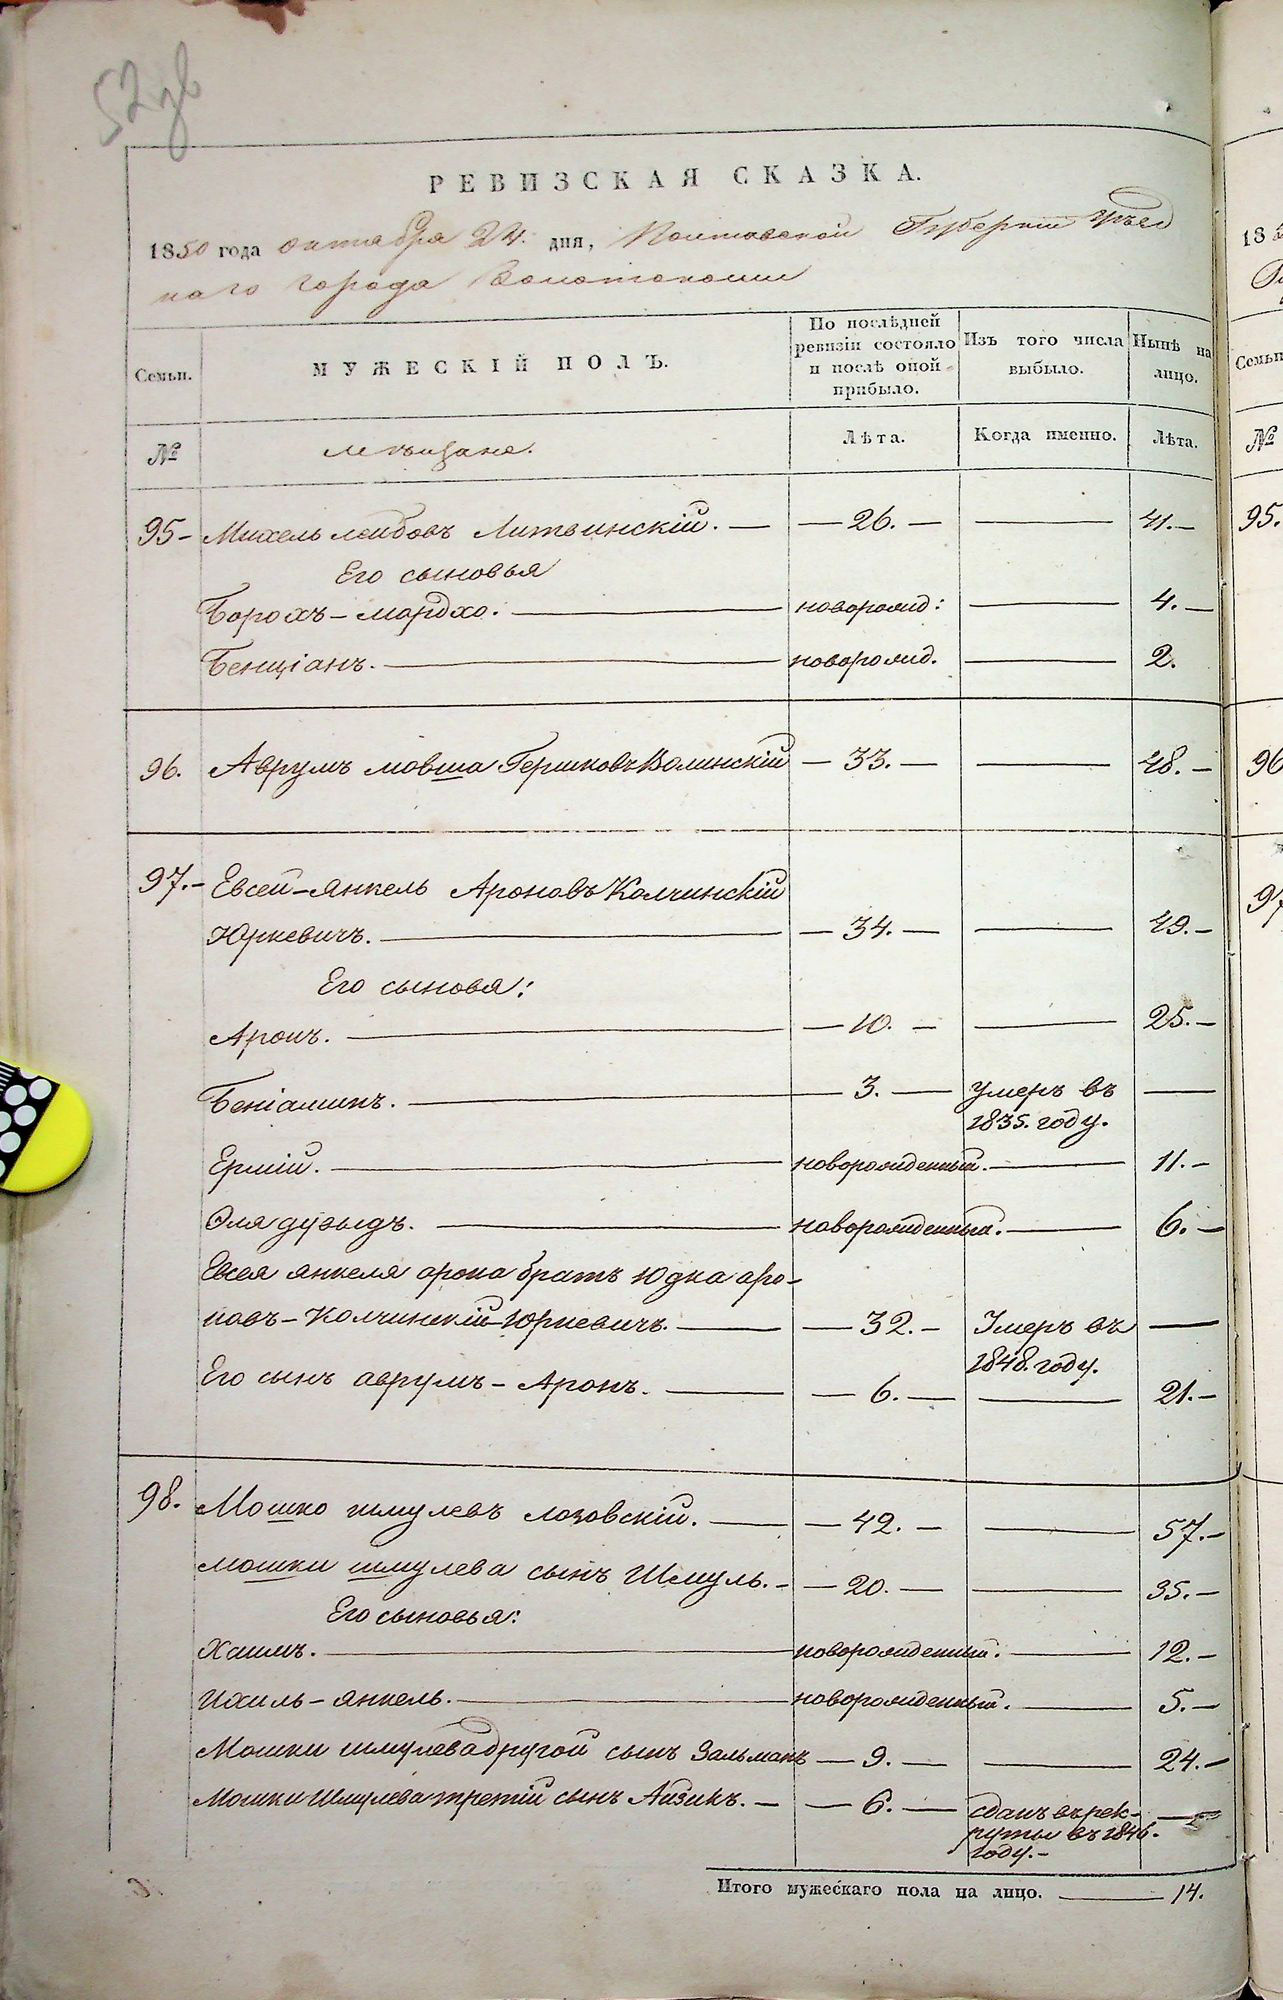 52 об
РЕВИЗСКАЯ СКАЗКА.
1850 года октября 24. дня, Полтавской Губернии Уѣзд
наго города Золотоноши
Семьи. МУЖЕСКІЙ ПОЛЪ. По послѣдней ревизіи состояло и послѣ оной прибыло. Изъ того числа выбыло. Нынѣ на лицо.
№ мѣщане. Лѣта. Когда именно. Лѣта.
95- Михель лейбовъ Литвинскій. — — 26. — — 41. —
Его сыновья
Борохъ-мордхо. — новорожд: — 4. —
Бенціанъ. — новорожд. — 2.
96. Аврумъ мовша Гершковъ Волинскій — 33. — — 48. —
97.- Евсей-янкель Ароновъ Колчинскій
Юркевичъ. — — 34. — — 49. —
Его сыновя:
Аронъ. — — 10. — — 25. —
Беніаминъ. — — 3. — умеръ въ —
1835. году.
Ермій. — новорожденный. — 11. —
Эля дузыдъ. — новорожденный. — 6. —
Евсея янкеля арона братъ Юдка аро-
новъ-Колчинскій-Юркевичъ. — — 32. — Умеръ въ —
1848. году.
Его сынъ аврумъ-Аронъ. — — 6. — — 21. —
98. Мошко шмулевъ лозовскій. — — 42. — — 57. —
мошки шмулева сынъ Шмуль. - — 20. — — 35. —
Его сыновья:
Хаимъ. — новорожденный. — 12. —
Ихиль-янкель. — новорожденный. — 5. —
Мошки шмулева другой сынъ Зальманъ — 9. — — 24. —
Мошки Шмулева третій сынъ Айзикъ. — — 6. — сданъ въ рек- —
руты въ 1846.
году. -
Итого мужескаго пола на лицо. — 14.
18
Семьи
№
95.
96
97